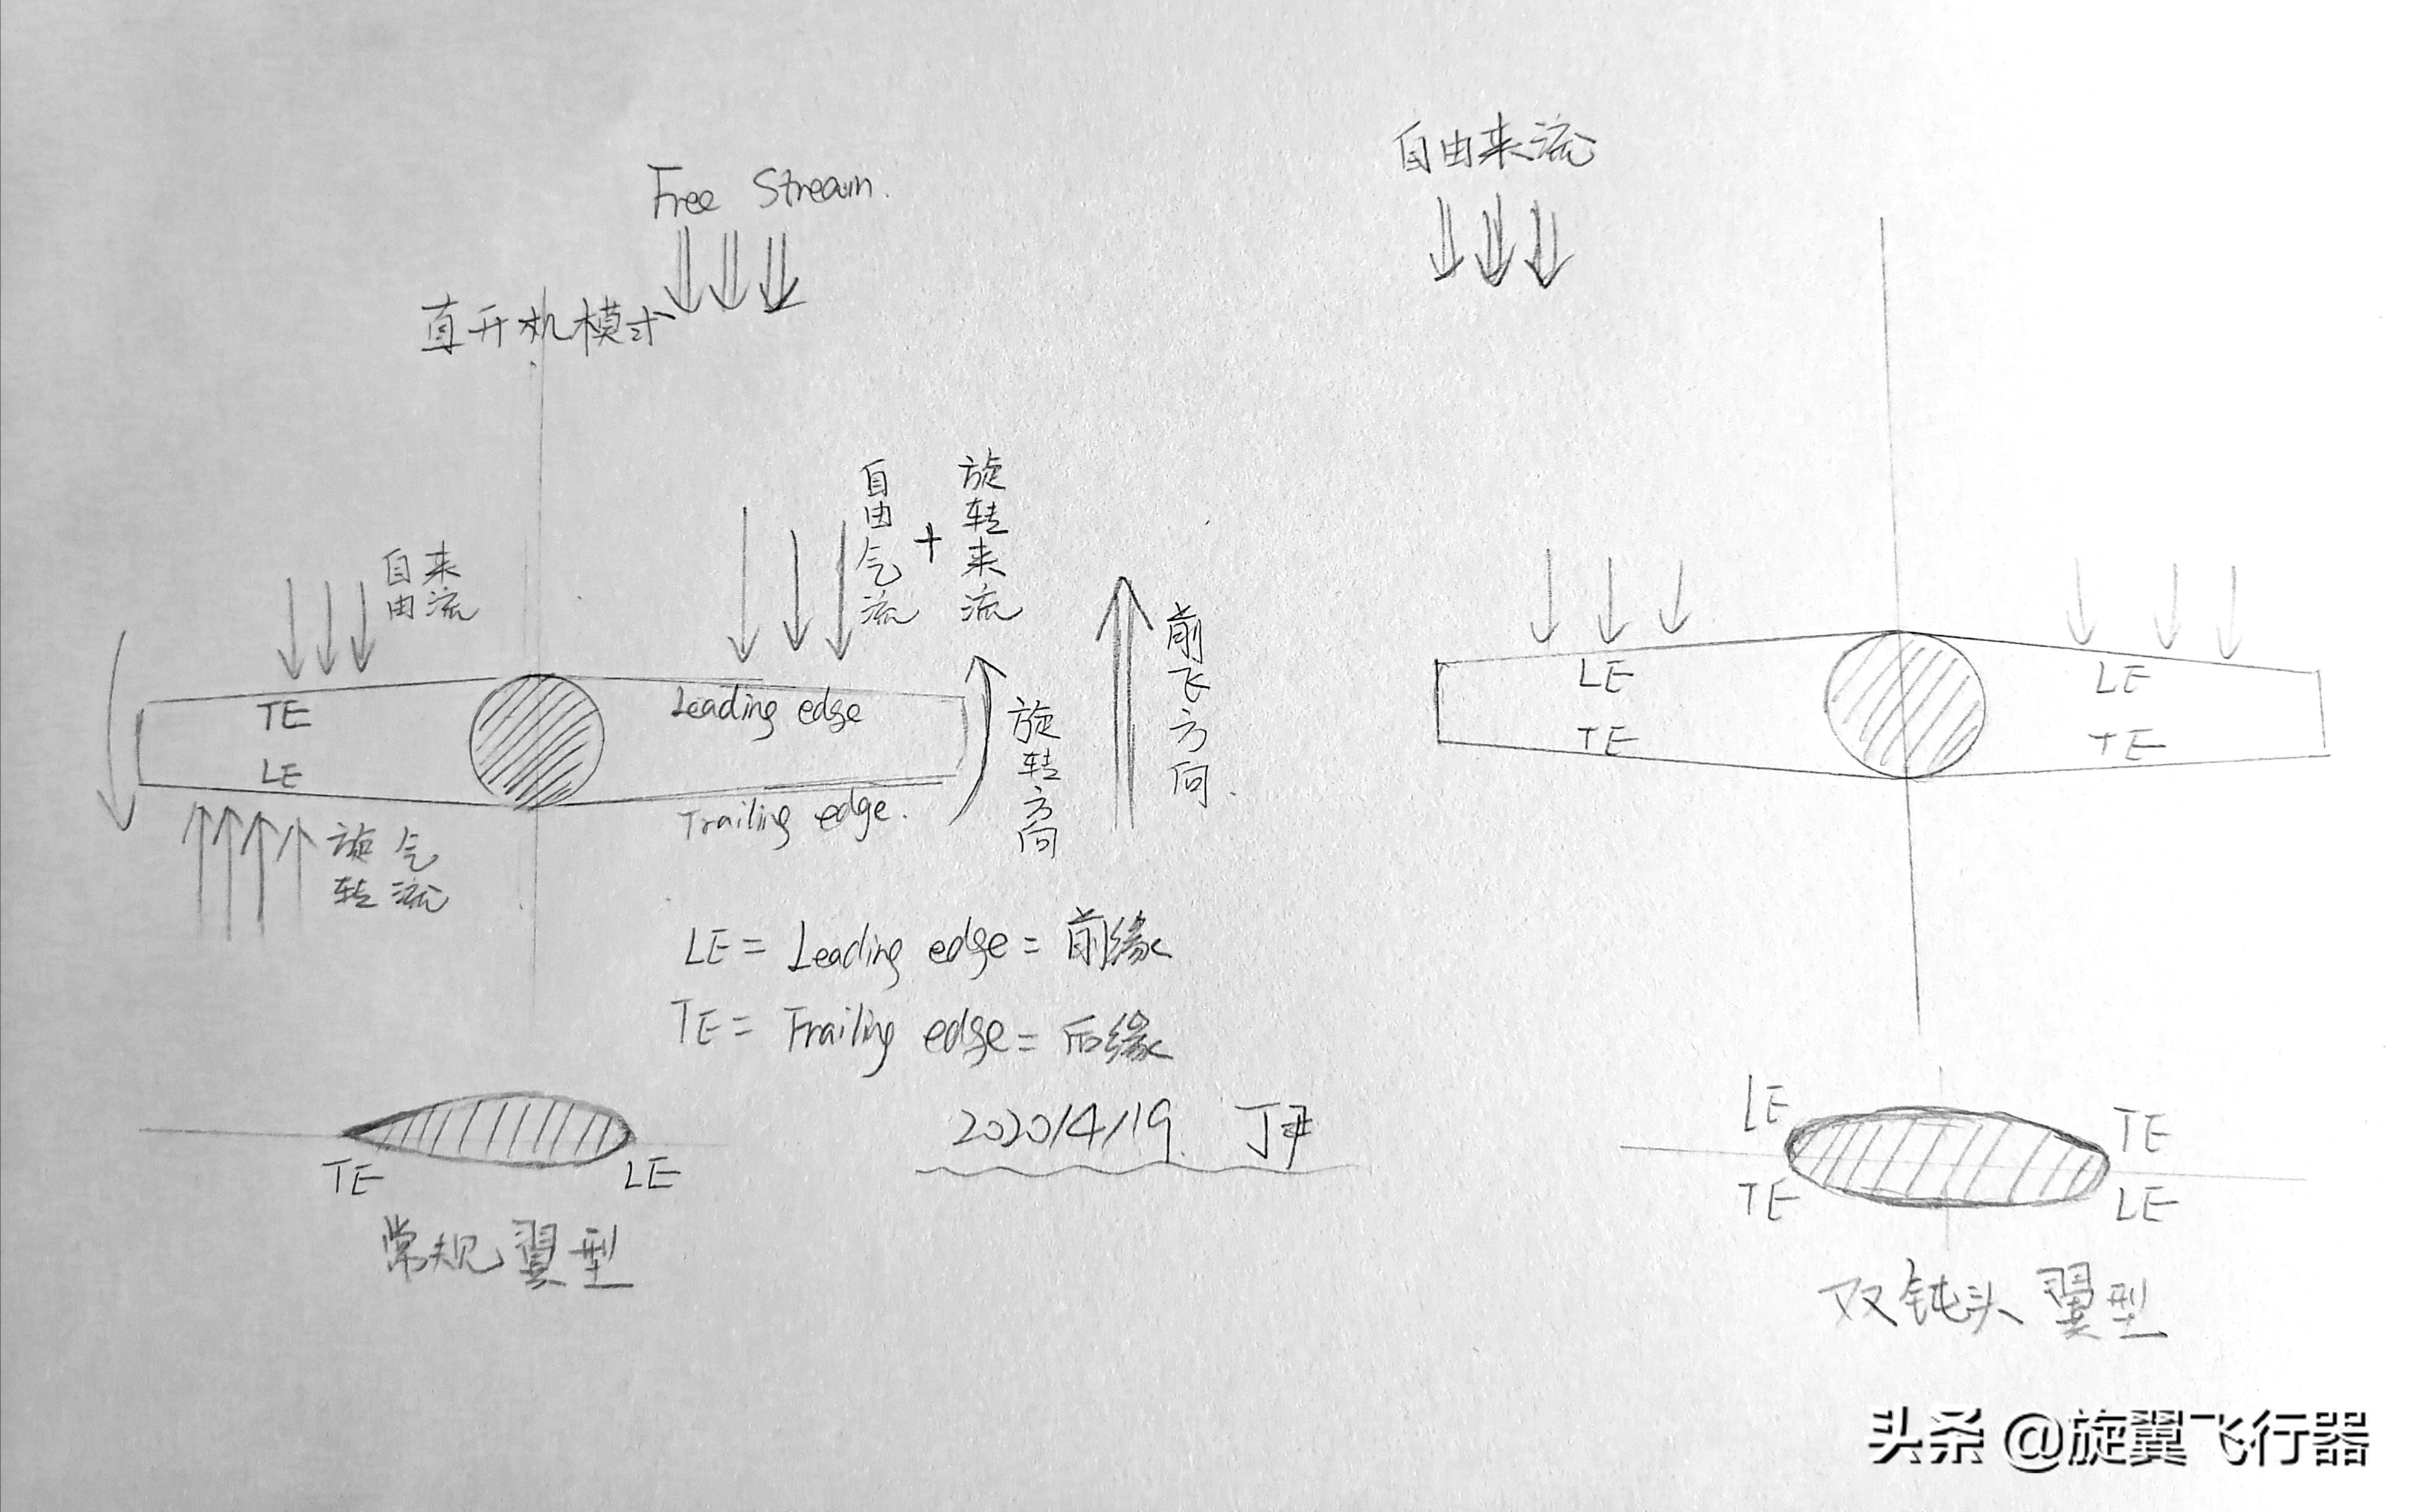 自由来流
Free Stream.
直升机模式
自由气流
+
旋转来流
自由
来流
前飞方向
旋转方向
TE
LE
Leading edge
Trailing edge.
旋转
气流
LE
TE
LE
TE
LE = Leading edge = 前缘
TE = Trailing edge = 后缘
2020/4/19.
TE
LE
常规翼型
LE
TE
TE
LE
双钝头翼型
头条 @旋翼飞行器